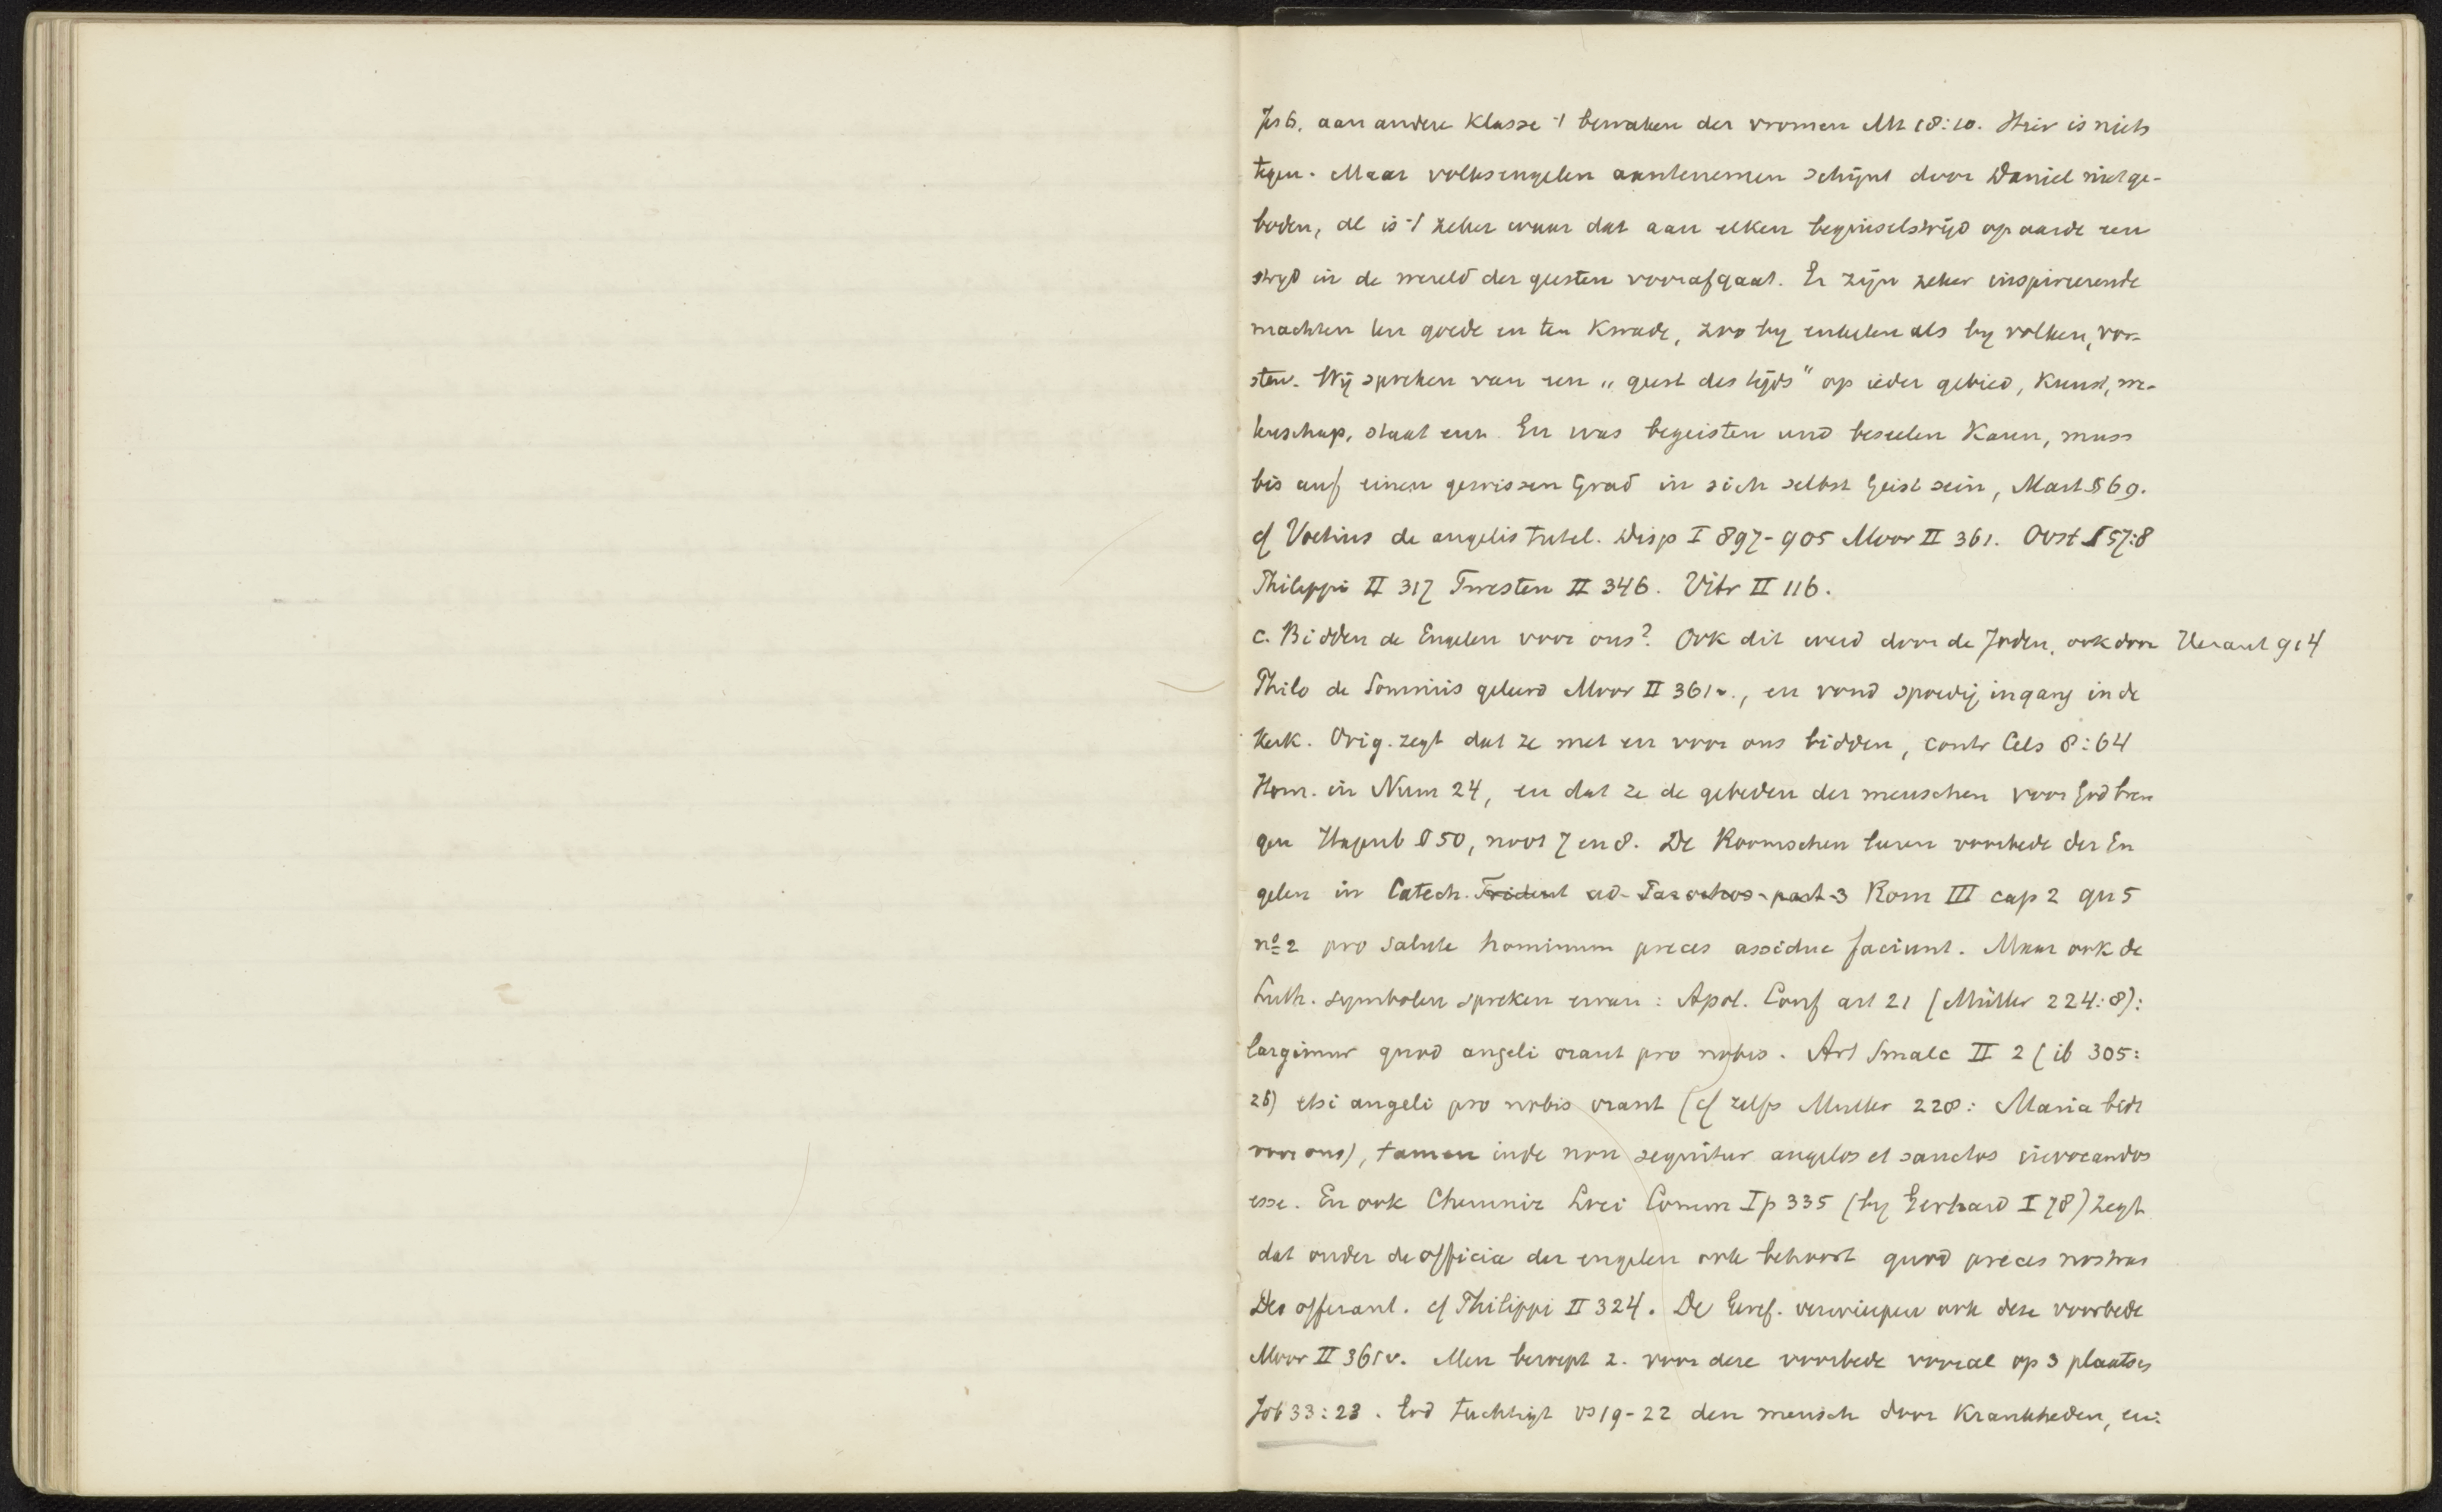 Jes 6, aan andere klasse 't bewaken der vromen Mt 18:10. Hier is niets
tegen. Maar volksengelen aantenemen schijnt door Daniel niet ge-
boden, al is 't zeker waar dat aan elken beginselstrijd op aarde een
strijd in de wereld der geesten voorafgaat. Er zijn zeker inspireerende
machten ten goede en ten kwade, zoo by enkelen als by volken, vor-
sten. Wij spreken van een „geest des tijds" op ieder gebied, kunst, we-
tenschap, staat enz. En was begeisten und beseelen kann, muss
bis auf einen gewissen Grad in sich selbst Geist sein, Mart § 69.
cf Voetius de angelis tutel. Disp I 897-905 Moor II 361. Oost § 57:8
Philippi II 317 Twesten II 346. Vitr II 116.
c. Bidden de Engelen voor ons? Ook dit werd door de Joden, ook door
Philo de Somniis geleerd Moor II 361v., en vond spoedig ingang in de
Kerk. Orig. zegt dat ze met en voor ons bidden, contr Cels 8:64
Hom. in Num 24, en dat ze de gebeden der menschen voor God bren
gen Hagenb § 50, noot 7 en 8. De Roomschen leeren voorbede der En
gelen in Catech. Trident ad Parochos part 3 Rom III cap 2 qu 5
no 2 pro salute hominum preces assidue faciunt. Maar ook de
Luth. symbolen spreken ervan: Apol. Conf art 21 (Müller 224:8):
largimur quod angeli orant pro nobis. Art Smalc II 2 (ib 305:
26) etsi angeli pro nobis orant (cf zelfs Muller 228: Maria bidt
voor ons), tamen inde non sequitur angelos et sanctos invocandos
esse. En ook Chemniz Loci Comm I p 335 (by Gerhard I 78) zegt
dat onder de officia der engelen ook behoort quod preces nostras
Deo offerant. cf Philippi II 324. De Geref. verwierpen ook deze voorbede
Moor II 361v. Men beroept z. voor deze voorbede vooral op 3 plaatsen
Job 33:23. God tuchtigt vs 19-22 den mensch door krankheden, en